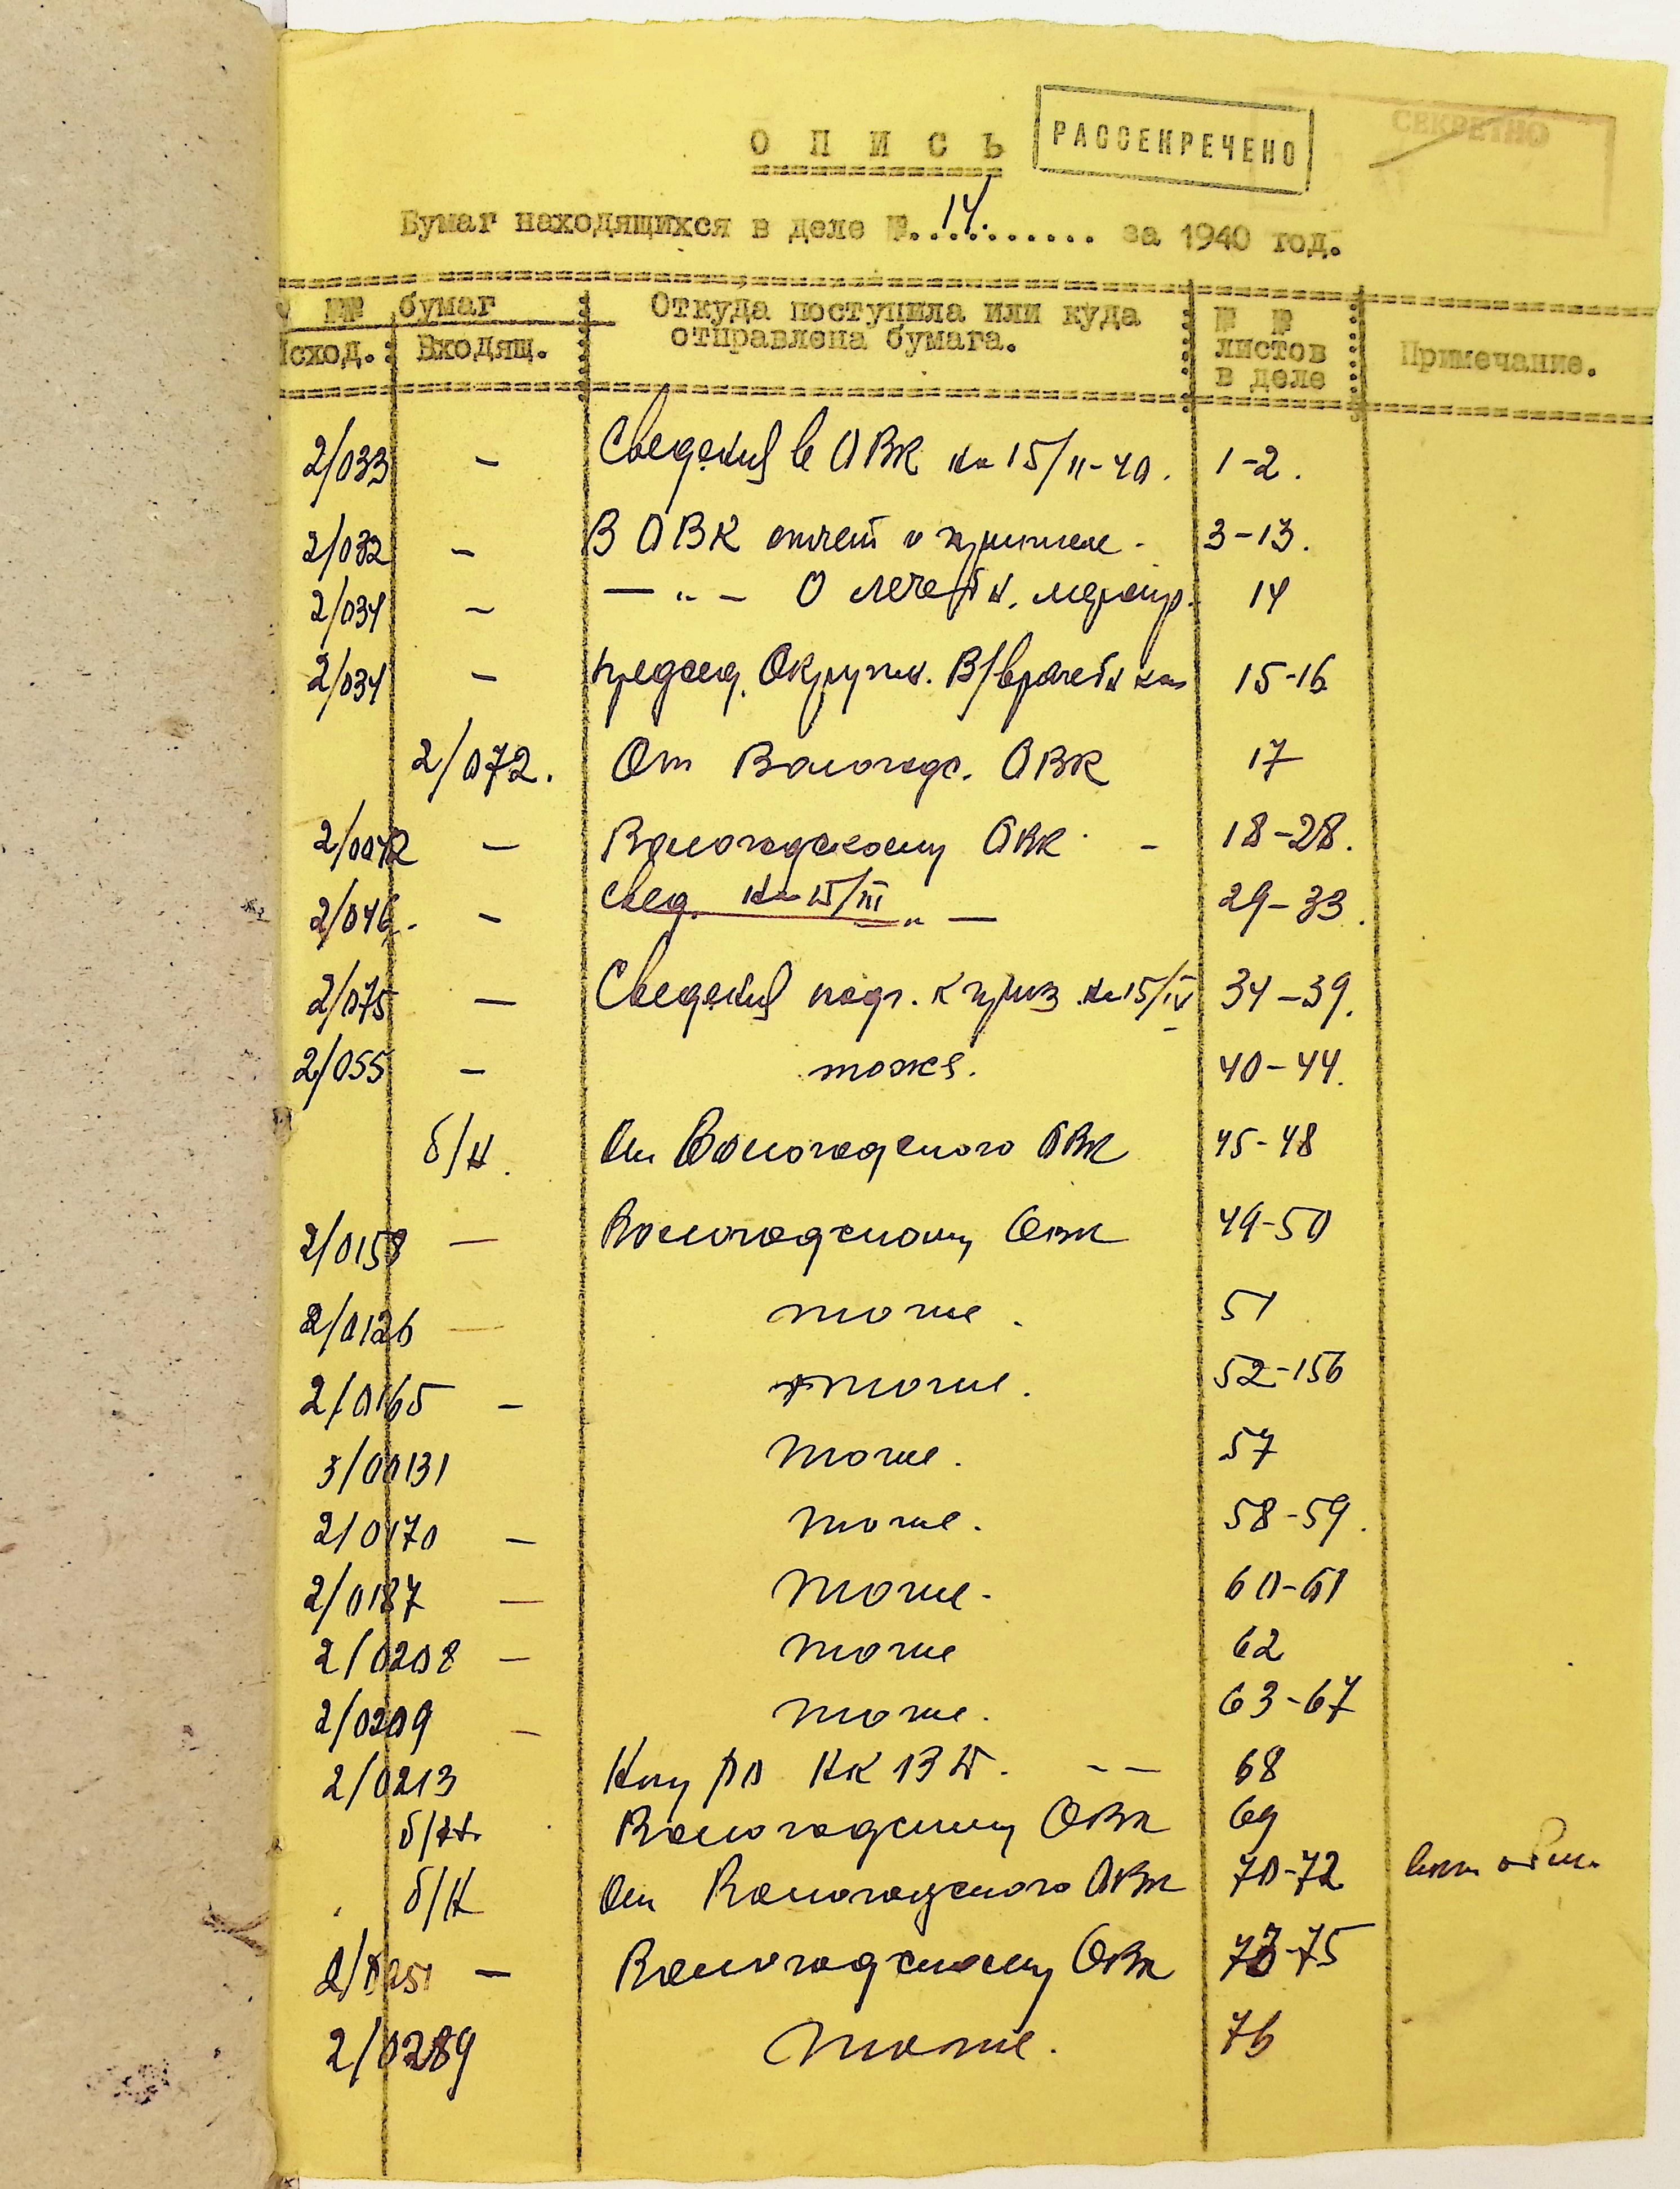 О П И С Ь
РАССЕКРЕЧЕНО
СЕКРЕТНО
Бумаг находящихся в деле №. 14. за 1940 год.
№№ бумаг
Исход. Входящ.
Откуда поступила или куда
отправлена бумага.
№ №
листов
в деле
Примечание.
2/033 - Сведения в ОВК на 15/II-40. 1-2.
2/032 - В ОВК отчет о 3-13.
2/034 - — „ — О лечебн. 14
2/034 - Председ. Окружн. В/врачебн. 15-16
2/072. От Вологодс. ОВК 17
2/0042 - Вологодскому ОВК - 18-28.
2/046. - Свед. на 15/III „ — 29-33.
2/075 - Сведения подг. к на 15/IV 34-39.
2/055 - тоже. 40-44.
б/н. От Вологодского ОВК 45-48
2/0158 - Вологодскому ОВК 49-50
2/0126 - тоже. 51
2/0165 - тоже. 52-156
3/00131 тоже. 57
2/0170 - тоже. 58-59.
2/0187 - тоже. 60-61
2/0208 - тоже 62
2/0209 - тоже. 63-67
2/0213 68
б/н. Вологодскому ОВК 69
б/н От Вологодского ОВК 70-72
- Вологодскому ОВК 73-75
2/0289 тоже. 76